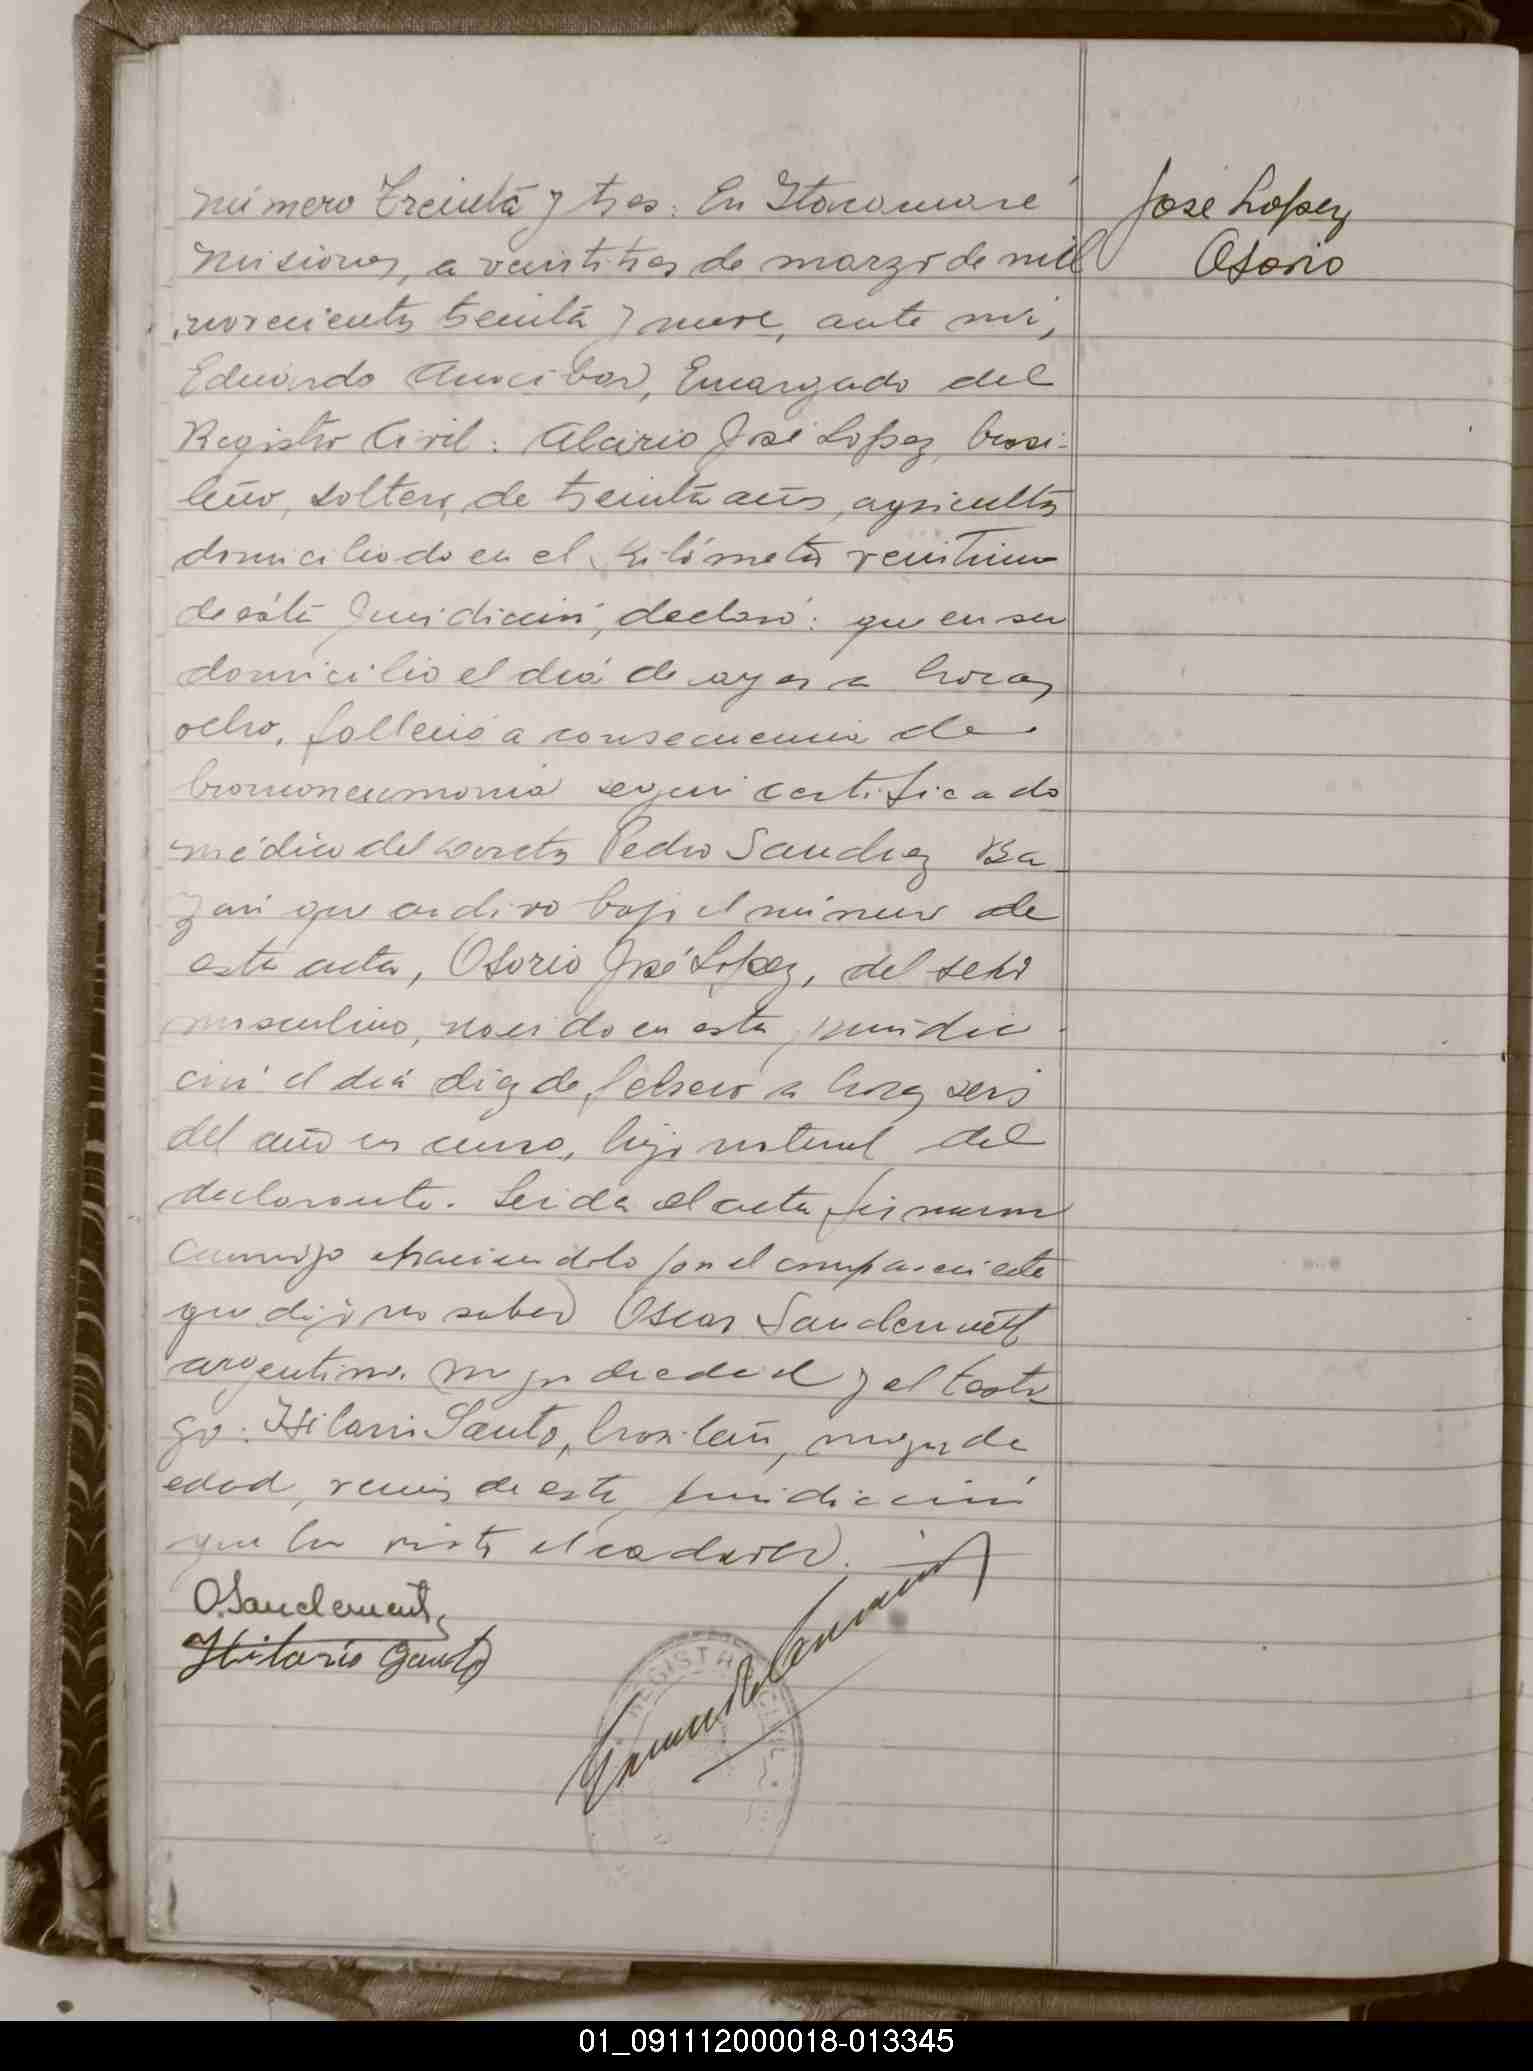 Número Treinta y tres: En Itacaruaré
José Lopez
Misiones, a veintitres de marzo de mil
Osorio
novecientos treinta y nueve, ante mi,
Eduardo, Encargado del
Registro Civil: Alcirio José Lopez, brasi-
leño, soltero, de treinta años, agricultor
domiciliado en el kilómetro veintiuno
de ésta Juridicción, declaró: que en su
domicilio el diá de ayer a horas
ocho, falleció a consecuencia de
bronconeumonia segun certificado
médico del Doctor Pedro Sanchez Ba-
zan que archivo bajo el número de
esta acta, Osorio José Lopez, del sexo
masculino, nacido en esta juridic
ción el diá diez de febrero a horas seis
del año en curso, hijo natural del
declarante. Leida el acta firmaron
conmigo haciendolo por el compareciente
que dijo no saber Oscar Sandemett
argentino. mayor de edad y el testi
go: Hilario Santo, brasileño, mayor de
edad, vecinos de esta juridicción
que ha visto el cadaver.
Hilario
REGISTRO CIVIL
01_091112000018-013345